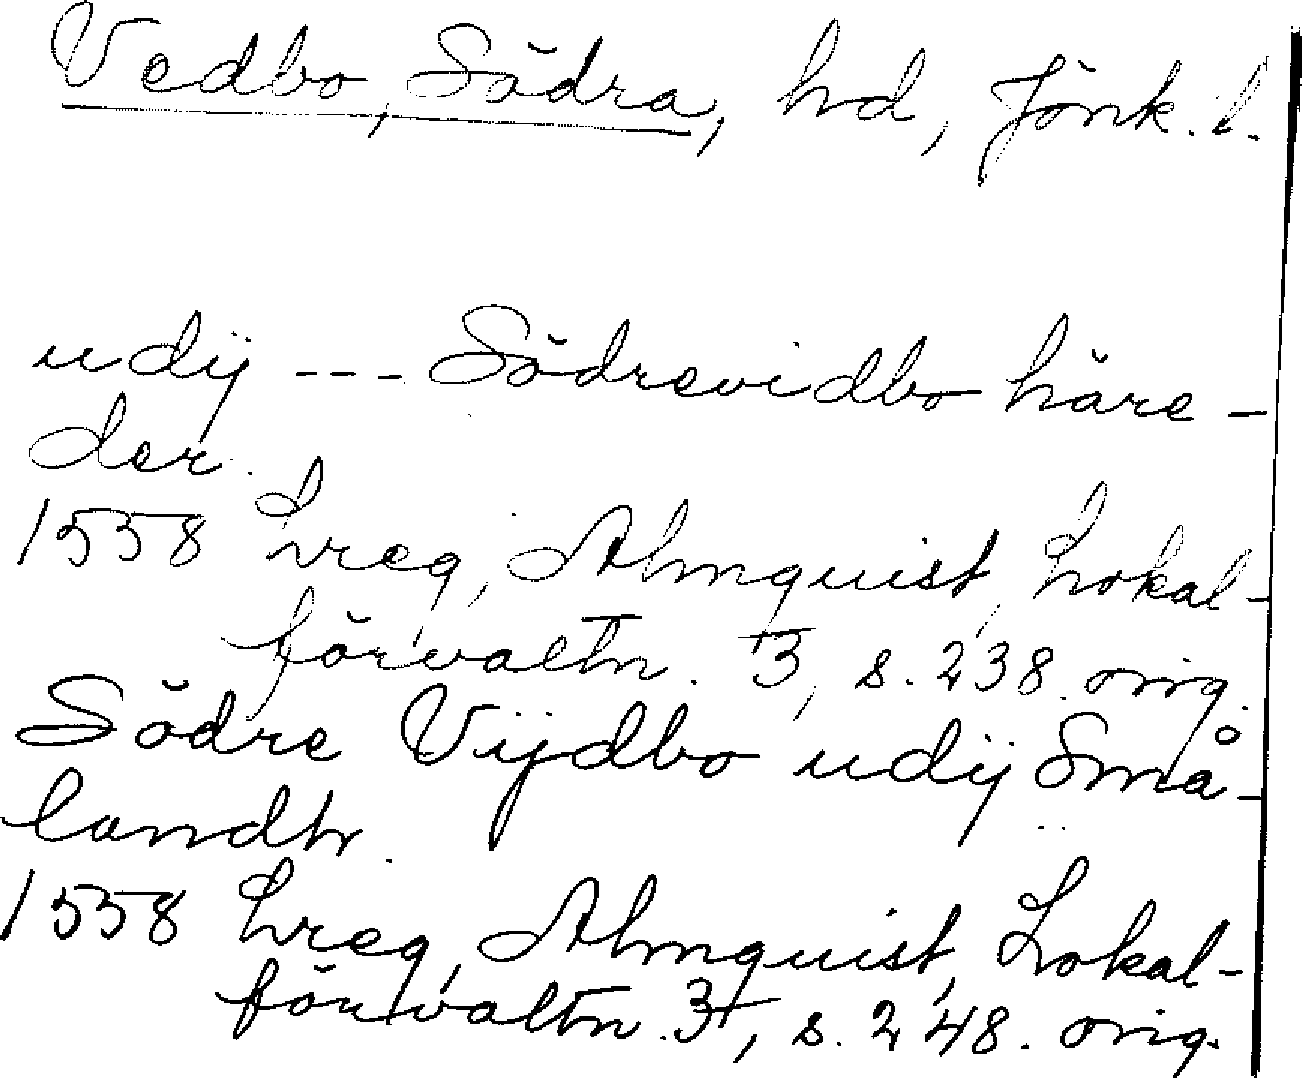 Vedbo, Södra, hd, Jönk. l.
udij --- Södrevidbo häre-
der.
1558 Lreg, Almquist, Lokal-
förvaltn. 3, s. 238. orig.
Södre Vijdbo udij Små-
landh.
1558 Lreg, Almquist, Lokal-
förvaltn. 3, s. 248. orig.